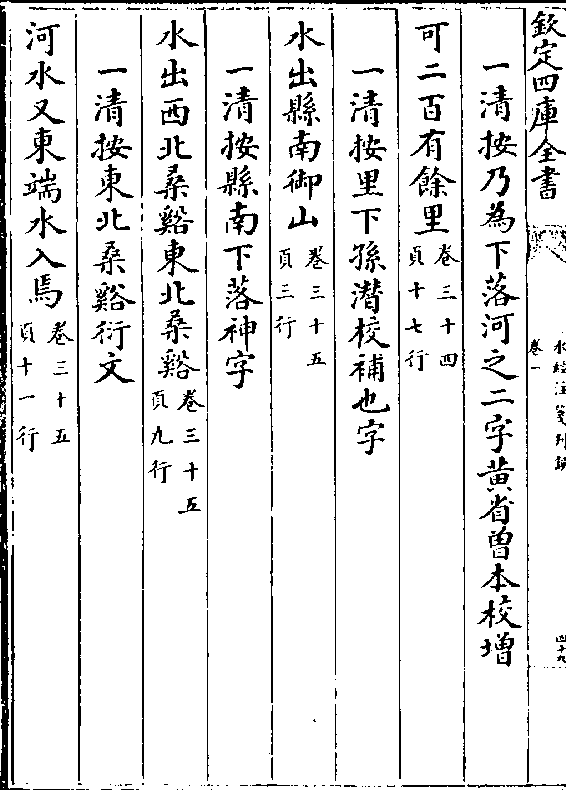 欽定四庫全書
水經注箋刊誤
卷一
四十九
一清按乃為下落河之二字黄省曽本校増
可二百有餘里卷三十四
頁十七行
一清按里下孫潛校補也字
水出縣南御山卷三十五
頁三行
一清按縣南下落神字
水出西北桑谿東北桑谿卷三十五
頁九行
一清按東北桑谿衍文
河水又東端水入焉卷三十五
頁十一行